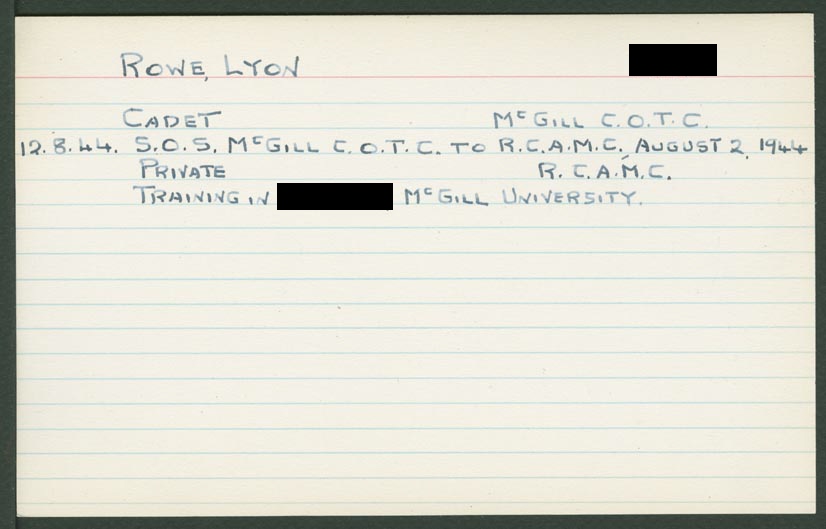 ROWE, LYON
CADET McGILL C.O.T.C.
12.8.44. S.O.S. McGILL C.O.T.C. TO R.C.A.M.C. AUGUST 2, 1944
PRIVATE R.C.A.M.C.
TRAINING IN McGILL UNIVERSITY.